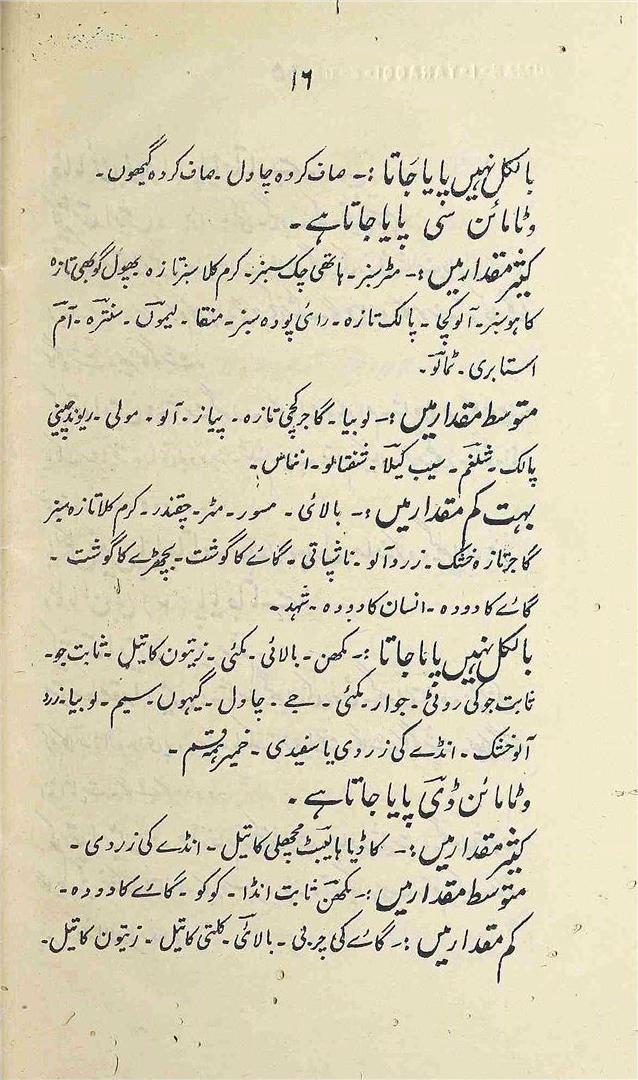 ۱۶
بالکل نہیں پایا جاتا :- صاف کردہ چاول ۔ صاف کردہ گیھوں ۔
وٹامائن سی پایا جاتا ہے ۔
کثیر مقدار میں :- مٹر سبز ۔ ہاتھی چک سبز ۔ کرم کلا سبز تازہ پھول گوبھی تازہ
کاہو سبز ۔ آلو کچا ۔ پالک تازہ ۔ رائی پودہ سبز ۔ منقا ۔ لیموں ۔ سنترہ ۔ آم
استابری ۔ ٹماٹو ۔
متوسط مقدار میں :- لوبیا ۔ گاجر کچی تازہ ۔ پیاز ۔ آلو ۔ مولی ۔ ریوند چینی
پالک ۔ شلغم ۔ سیب کیلا ۔ شفتالو ۔ انناس ۔
بہت کم مقدار میں :- بالائی ۔ مسور ۔ مٹر ۔ چقندر ۔ کرم کلا تازہ سبز
گاجر تازہ خشک ۔ زرد آلو ۔ ناشپاتی ۔ گائے کا گوشت ۔ بچھڑے کا گوشت ۔
گائے کا دودہ ۔ انسان کا دودہ ۔ شہد ۔
بالکل نہیں پایا جاتا :- مکھن ۔ بالائی ۔ مکئی ۔ زیتون کا تیل ۔ ثابت جو ۔
ثابت جو کی روٹی ۔ جوار ۔ مکئی ۔ جے ۔ چاول ۔ گیہوں ۔ سیم ۔ لوبیا ۔ زرد
آلو خشک ۔ انڈے کی زردی یا سفیدی ۔ خمیر ہمہ قسم ۔
وٹامائن ڈی پایا جاتا ہے ۔
کثیر مقدار میں :- کاڈ یا ہالیبٹ مچھلی کا تیل ۔ انڈے کی زردی ۔
متوسط مقدار میں :- مکھن ثابت انڈا ۔ کوکو ۔ گائے کا دودہ ۔
کم مقدار میں :- گائے کی چربی ۔ بالائی ۔ کا تیل ۔ زیتون کا تیل ۔